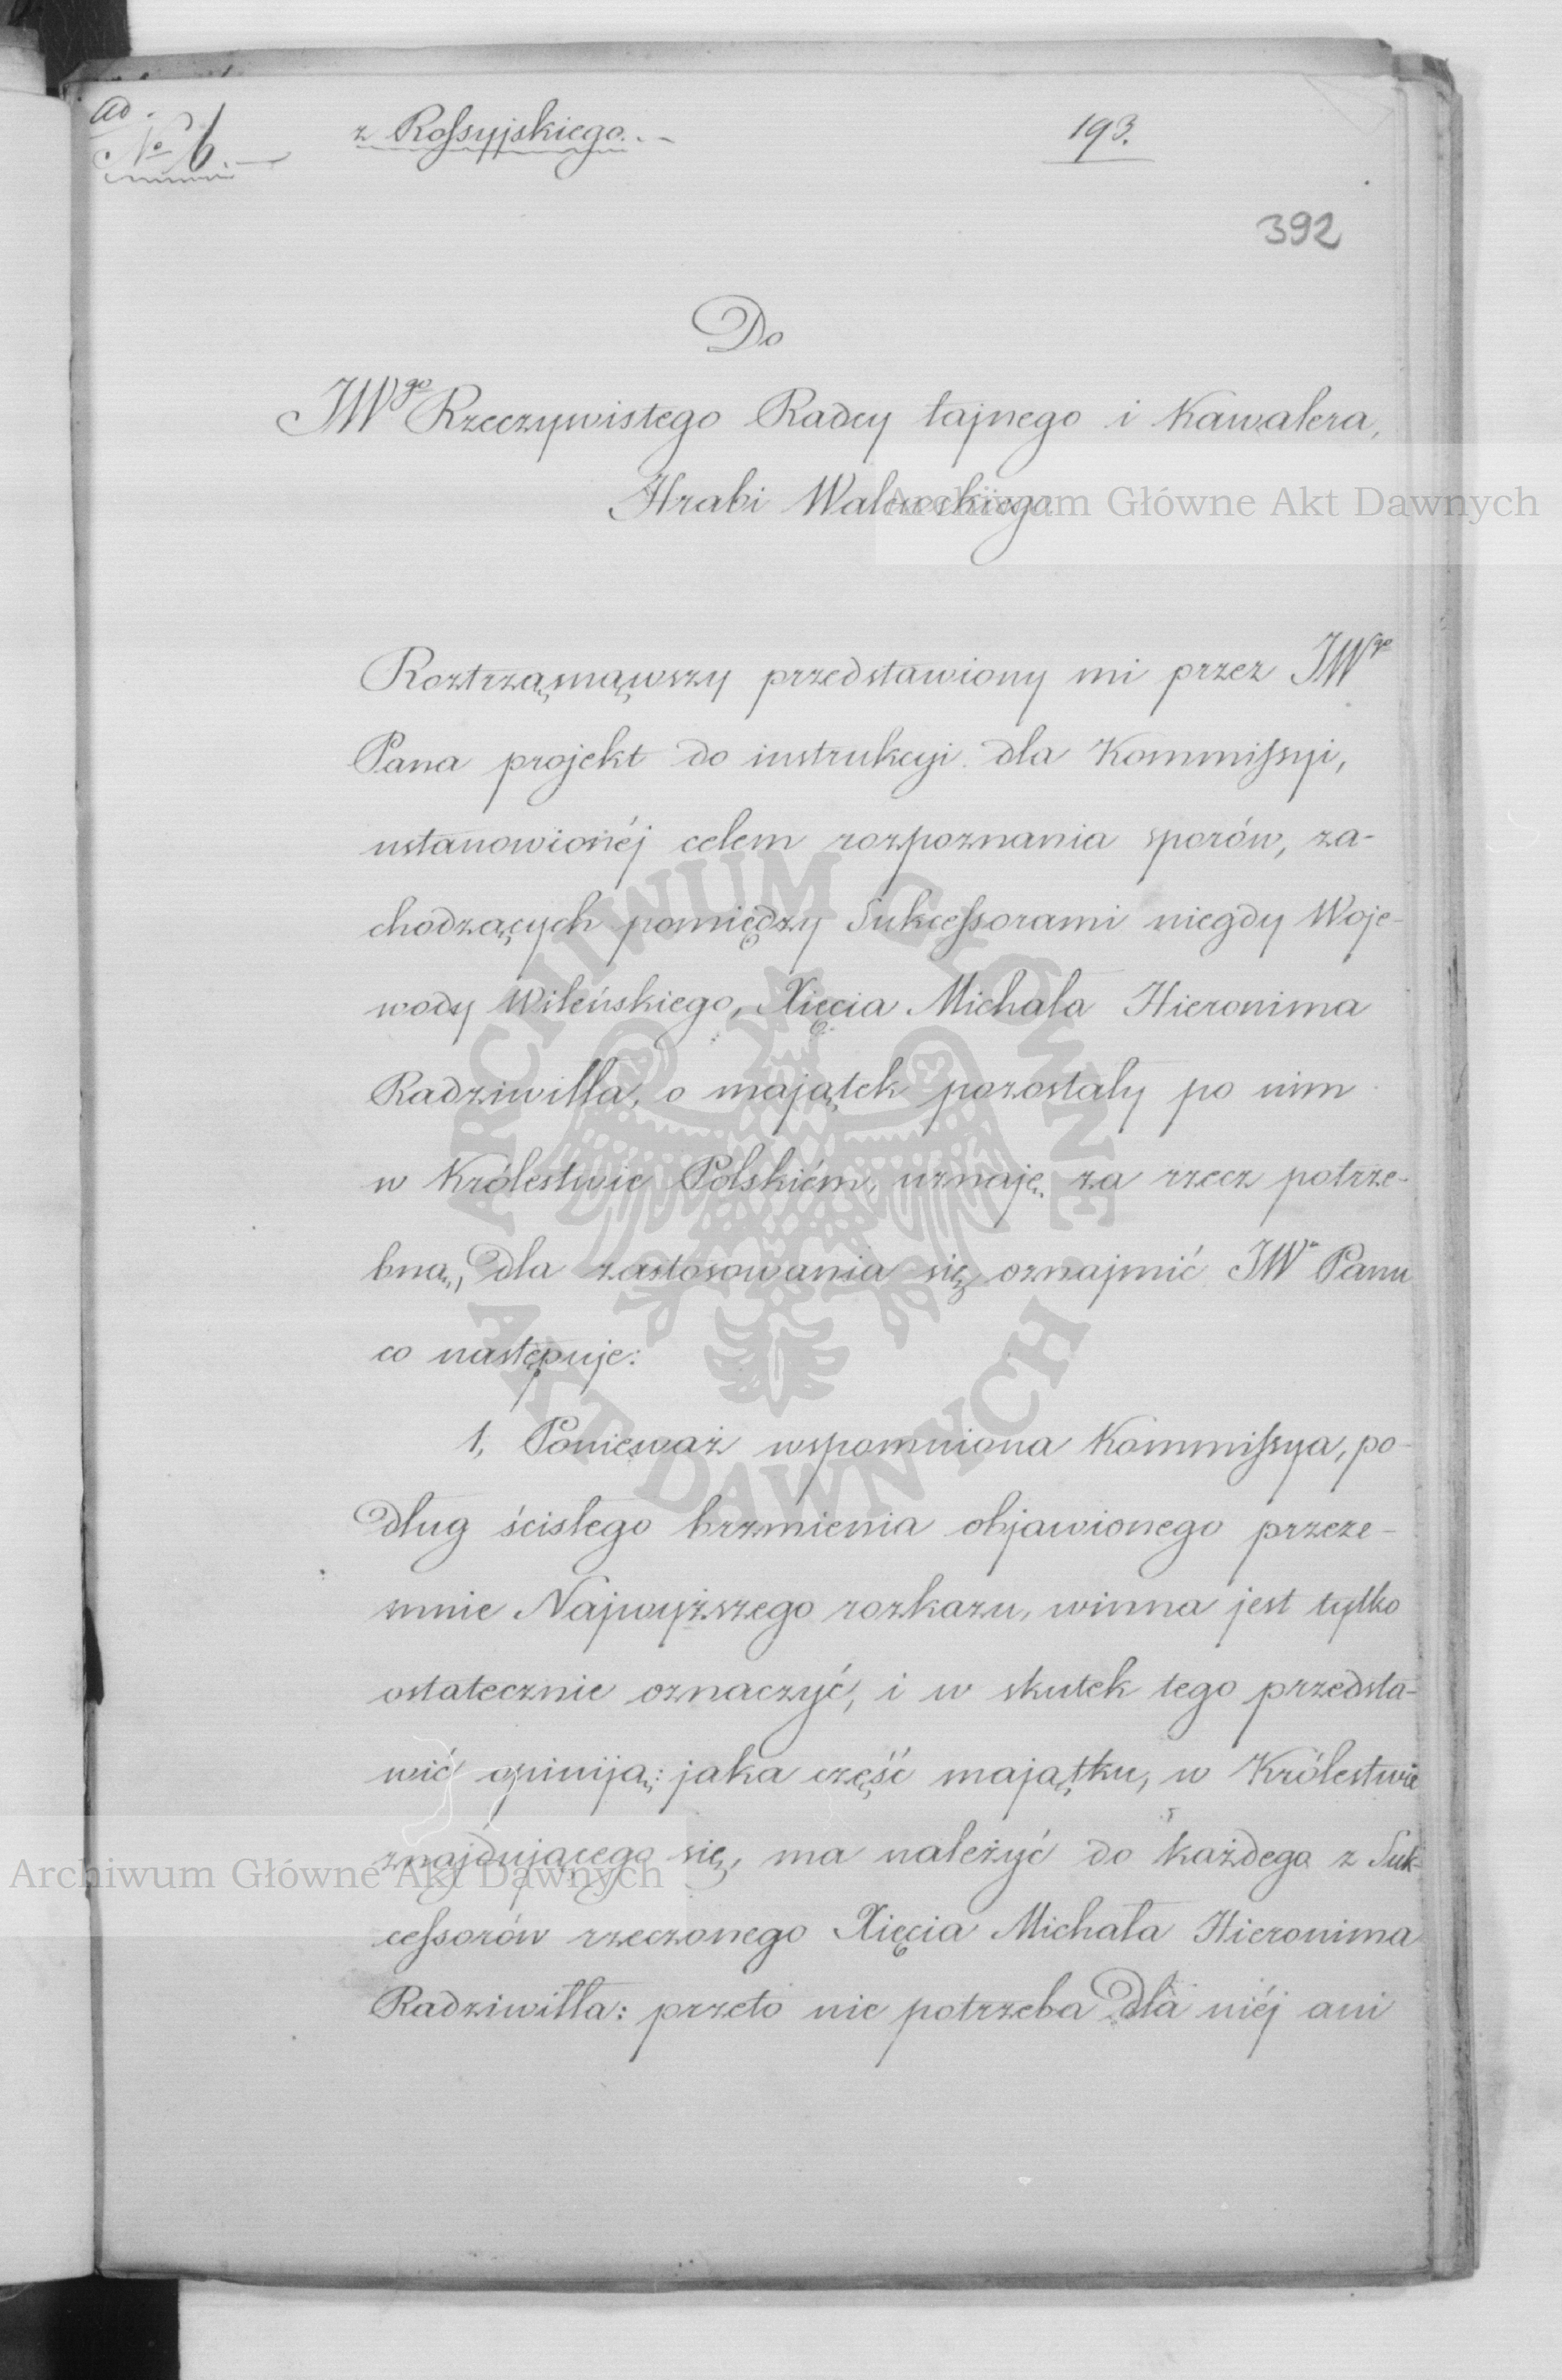 ad.
№ 6.—
z Rossyjskiego.—
193.
392
Do
JWgo Rzeczywistego Radcy tajnego i Kawalera,
Hrabi Walewskiego
Archiwum Główne Akt Dawnych
Roztrząsnąwszy przedstawiony mi przez JWgo
Pana projekt do instrukcyi dla Kommissyi,
ustanowionéj celem rozpoznania sporów, za-
chodzących pomiędzy Sukcessorami niegdy Woje-
wody Wileńskiego, Xięcia Michała Hieronima
Radziwiłła, o majątek pozostały po nim
w Królestwie Polskiém, uznaję za rzecz potrze-
bną, dla zastosowania się, oznajmić JWu Panu
co następuje:
1, Ponieważ wspomniona Kommissya, po-
dług ścisłego brzmienia objawionego przeze-
mnie Najwyższego rozkazu, winna jest tylko
ostatecznie oznaczyć, i w skutek tego przedsta-
wić opiniją: jaka część majątku, w Królestwie
znajdującego się, ma należyć do każdego z Suk-
cessorów rzeczonego Xięcia Michała Hieronima
Radziwiłła: przeto nie potrzeba dla niéj ani
ARCHIWUM GŁÓWNE AKT DAWNYCH
Archiwum Główne Akt Dawnych